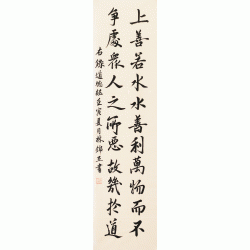 上善若水水善利萬物而不
爭處衆人之所惡故幾於道
右錄道德經壬寅夏月林邦正書